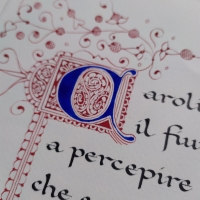 a arolu
il fu
a percepire
che